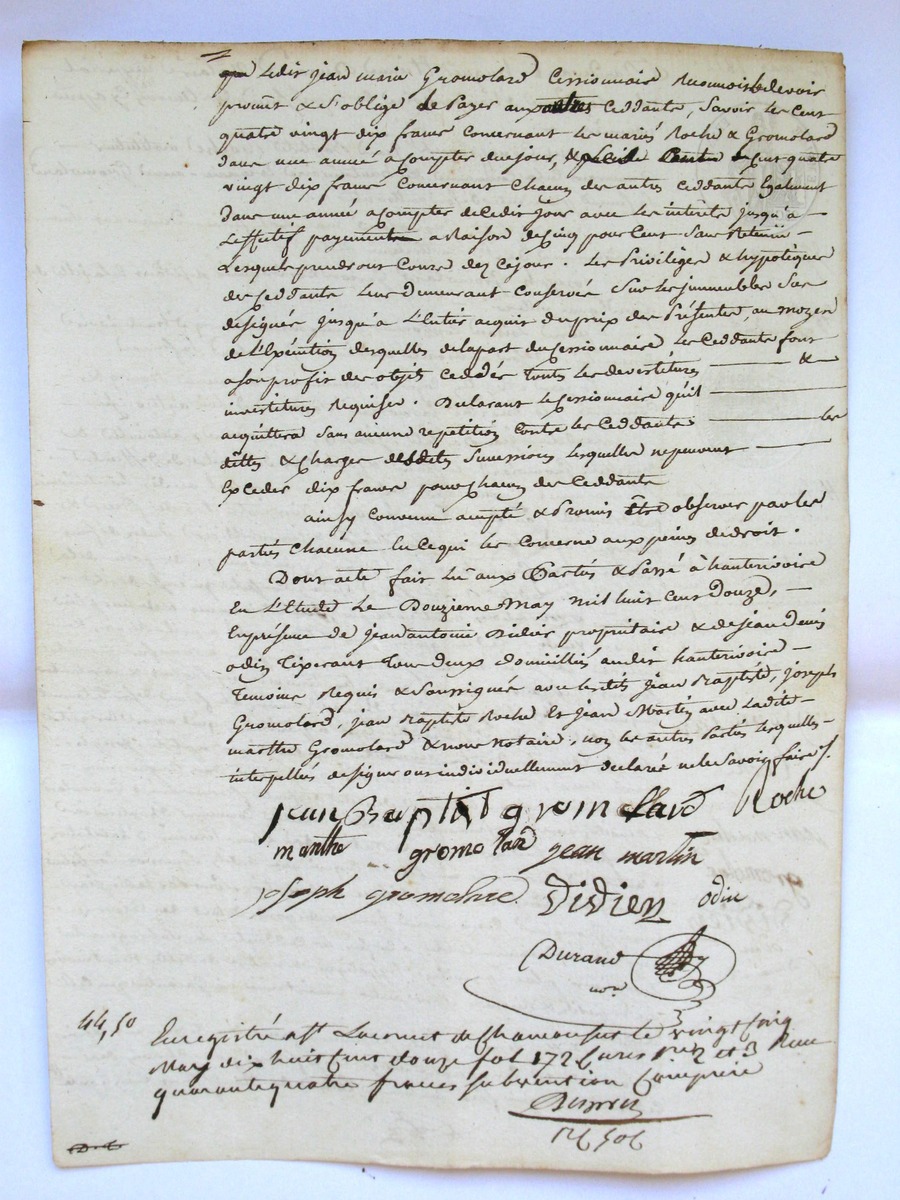 que Ledit jean marie Gromolard Cessionnaire Reconnoit devoir
promet & S'oblige de Payer aux autres Ceddants, Savoir les Cent
quatre vingt dix francs Concernant les mariés Roche & Gromolard
dans une année à Compter du ce jour, & Cent quatre
vingt dix francs Concernant Chacun des autres Ceddants Egalement
dans une année a Compter de Cedit jour avec les intérêts jusqu'à
L'effectif payement a Raison de Cinq pour Cent Sans Retenue
Lesquels prendront Cours dez Ce jour. Les Privilèges & hypotèques
des Ceddants Leur demeurant Conservés Sur les jmmeubles Sus
designés jusqu'à L'Entier acquit du prix des Présentes, au moyen
de L'Exécution desquelles de la part du Cessionnaire les Ceddants font
a son profit des objets Ceddés toutes les devestitures &
investitures Requises. Declarant le Cessionnaire qu'il
acquittera Sans aucune repetition Contre les Ceddants les
dettes & Charges desdites Successions Lesquelles ne peuvent
Exceder dix francs pour Chacun des Ceddants
ainsy Convenu accepté & Promis être observer par les
parties Chacune En Ce qui les Concerne aux peines de droit.
Dont acte fait Lu aux Parties & Passé à hauterivoire
En L'Etude Le Douzieme May mil huit Cent Douze,
En présence de jean antoine Didier propritaire & de jean Denis
odin Tiserant Tous deux domicilliés audit hauterivoire
Temoins Requis & Soussignés avec lesdits jean Baptiste, joseph
Gromolard, jean Baptiste Roche Et jean Martin avec Ladite
marthe Gromolard & nous Notaire, non les autres Parties lesquelles
interpellés de signer ont individuellement declarés ne le Savoir faire
jean Baptist gromolard Roche
marthe gromolard jean martin
joseph gromolard Didier odin
Durand
nore
44,50 Enregistré a St Laurent de Chamousset le vingt cinq
May dix huit Cent douze fol 172 Cases 1re 2 et 3 Reçu
quarante quatre francs subvention Comprise